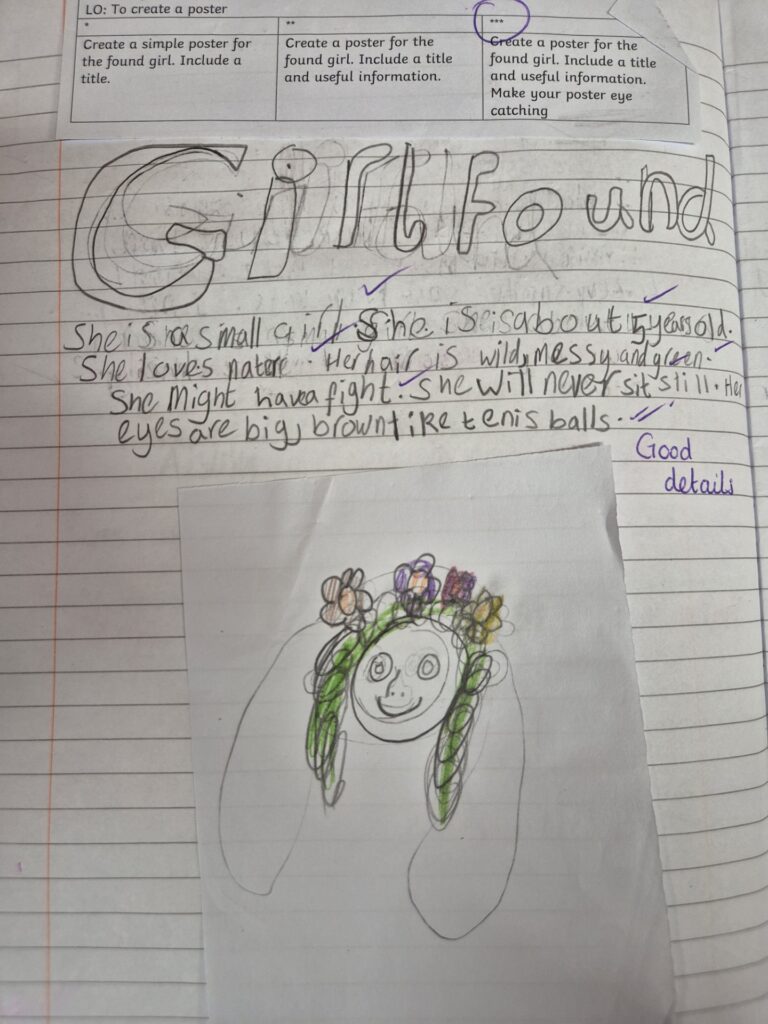 LO: To create a poster
* ** ***
Create a simple poster for the found girl. Include a title.
Create a poster for the found girl. Include a title and useful information.
Create a poster for the found girl. Include a title and useful information. Make your poster eye catching
Girl Found
She is a small girl. She is about 5 years old.
She loves nature. Her hair is wild, messy and green.
She Might have a fight. She will never sit still. Her
eyes are big, brown like tenis balls.
Good
details